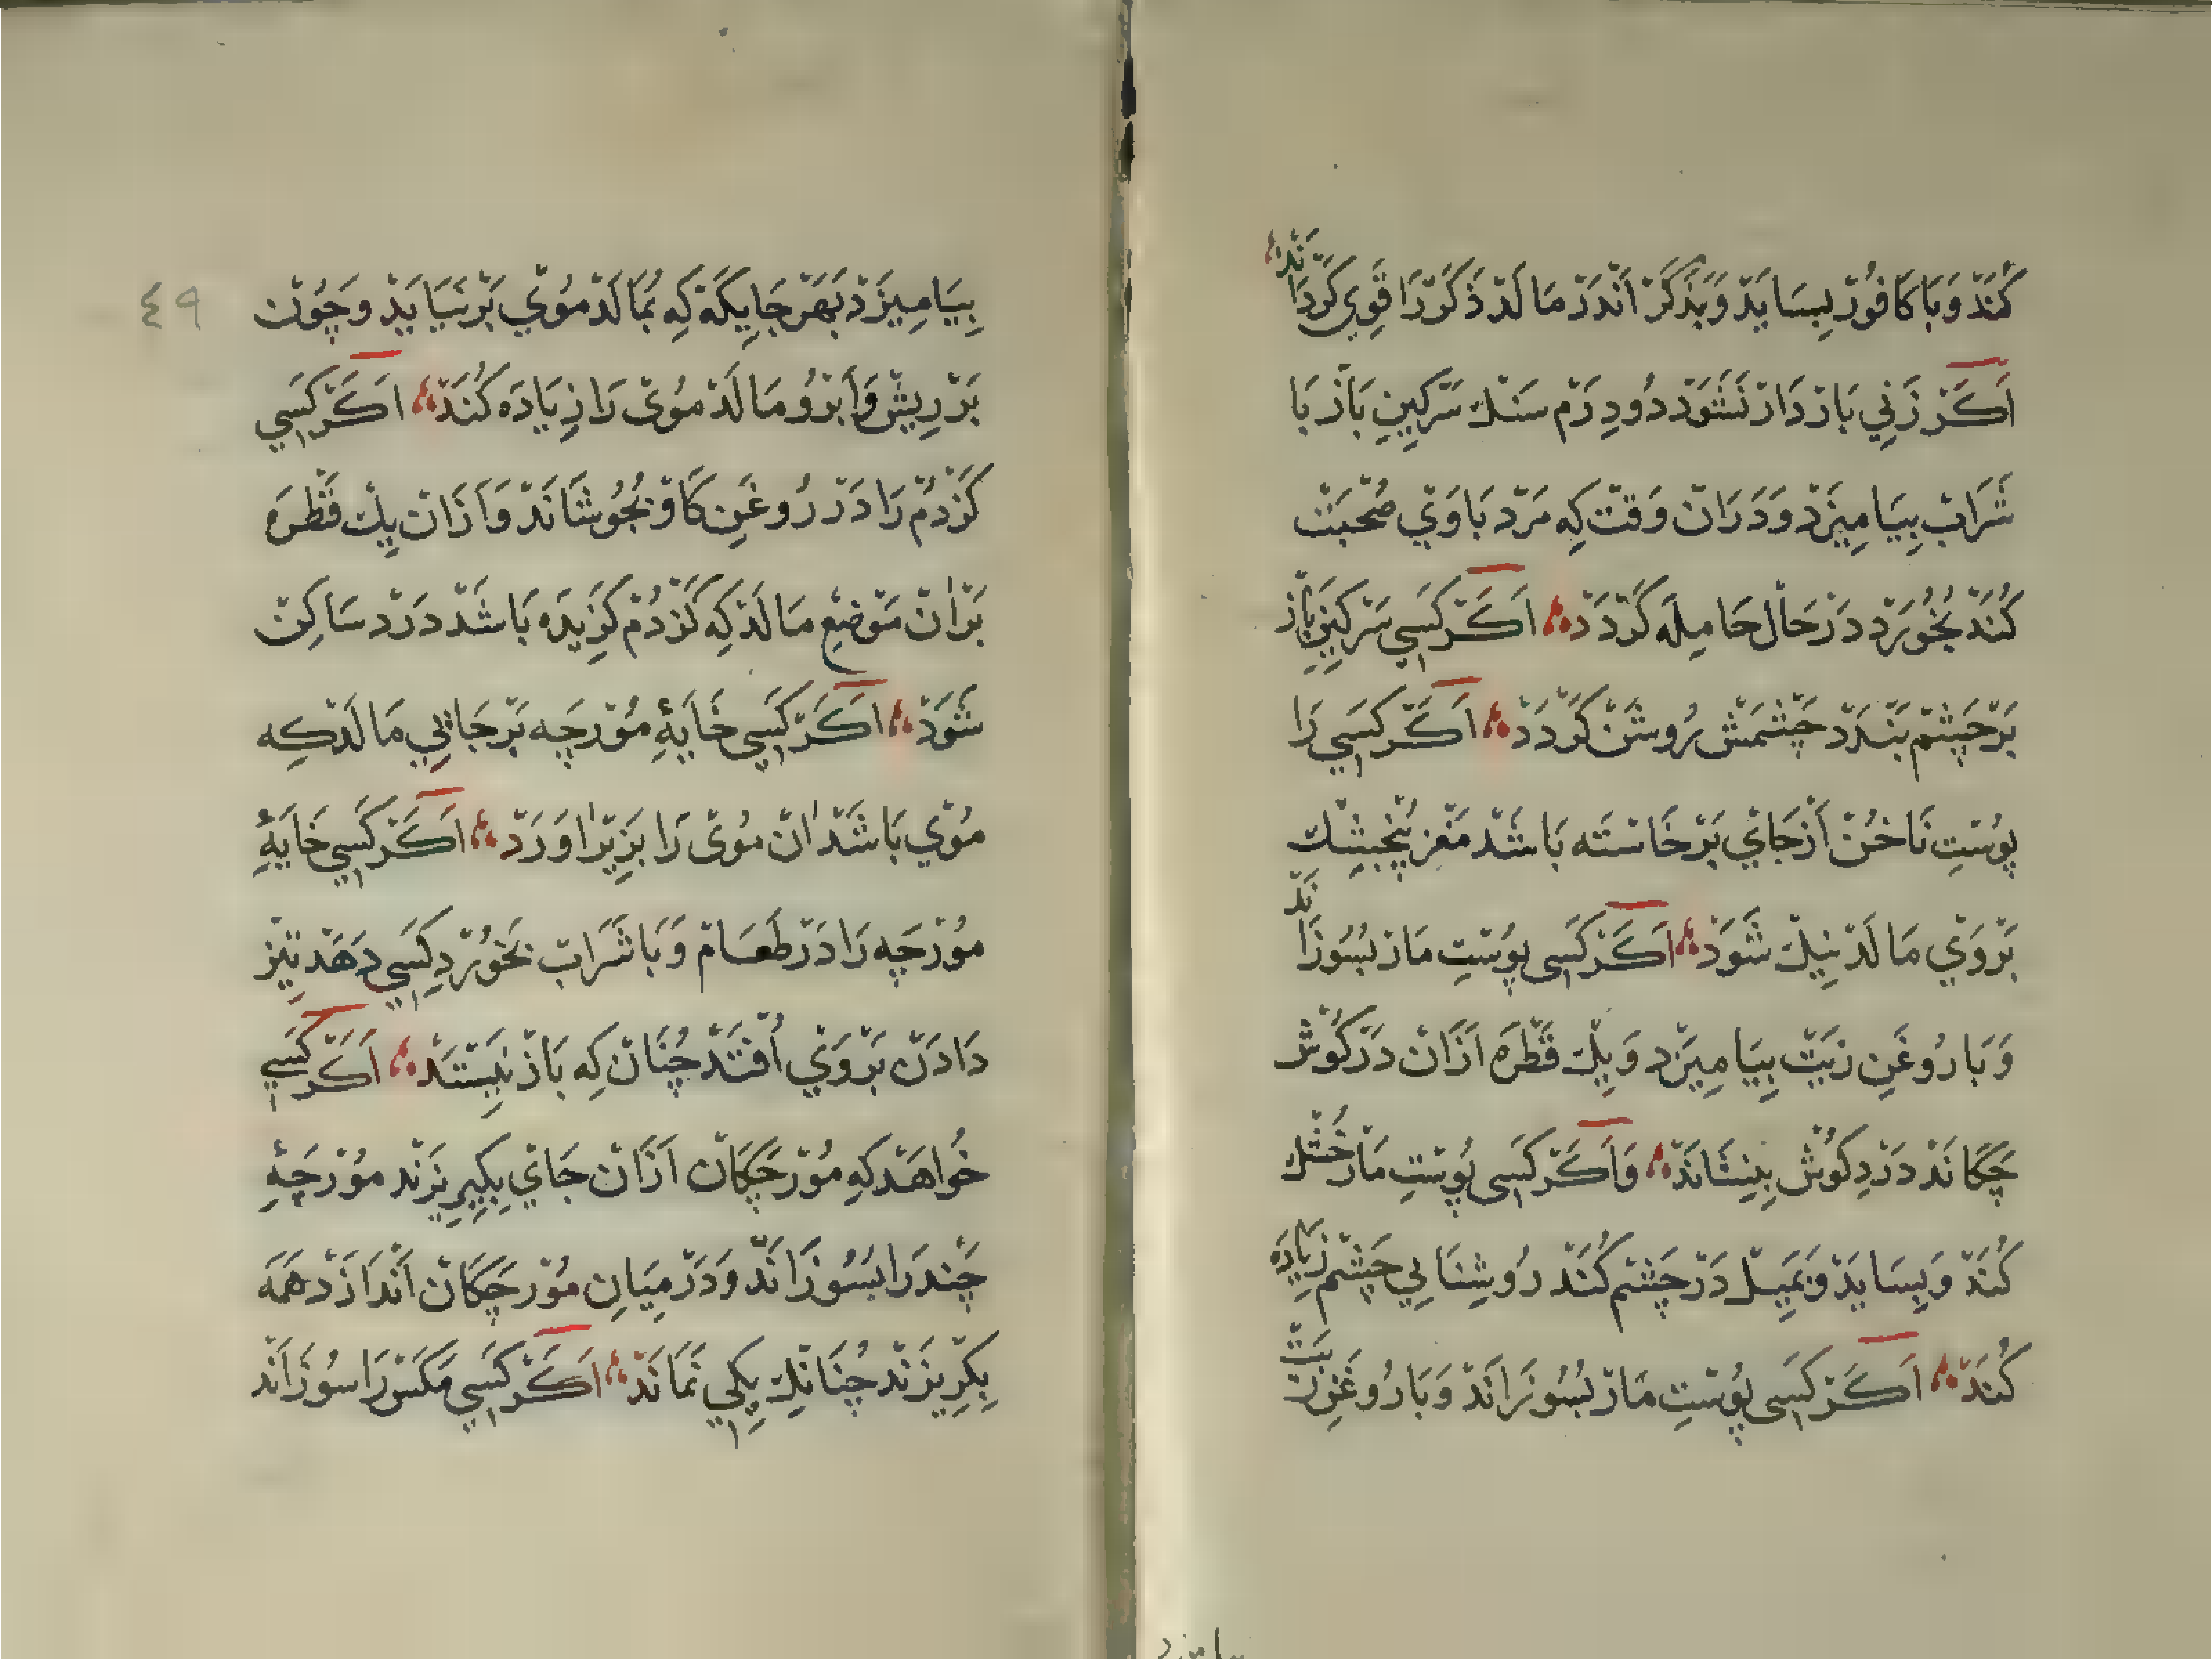 كُنَدْ وَبَا كَافُورْ بِسَايَدْ وَبَذَكَرْ اَنْدَرْ مَالَدْ ذَكَرْ رَا قَوِي كَرْدَانَدْ
اَكَرْ زَنِي بَارْدَارْ نَشَوَدْ دُو دِرَمْ سَنْك سَرْكِينِ بَازْ بَا
شَرَابْ بِيَامِيزَدْ وَدَرَانْ وَقْتْ كِه مَرْدْ بَاوَيْ صُحْبَتْ
كُنَدْ بُخُورَدْ دَرْ حَالْ حَامِلَه كَرْدَدْ اَكَرْ كَسِي سَرْكِينِ بَازْ
بَرْ چَشْمْ بَنْدَدْ چَشْمَشْ رُوشَنْ كَرْدَدْ اَكَرْ كَسِي رَا
پُوسْتِ نَاخُنْ اَزْ جَايْ بَرْخَاسْتَه بَاشَدْ مَغْزِ بُنْجِشْك
بَرْ وَيْ مَالَدْ نِيك شَوَدْ اَكَرْ كَسِي پُوسْتِ مَارْ بُسُوزَانَدْ
وَبَا رُوغَنِ زَيْتْ بِيَامِيزَدْ وَيِك قَطْرَه اَزَانْ دَرْ كُوشْ
چَكَانَدْ دَرْدِ كُوشْ بِنِشَانَدْ وَاَكَرْ كَسِي پُوسْتِ مَارْ خُشْك
كُنَدْ وَبِسَايَدْ وَبَمِيلْ دَرْ چَشْمْ كُنَدْ رُوشِنَايِي چَشْمْ زِيَادَه
كُنَدْ اَكَرْ كَسِي پُوسْتِ مَارْ بُسُوزَانَدْ وَبَا رُوغَنِ زَيْتْ
بيامیزد
٤٩
بِيَامِيزَدْ بَهَرْ جَايِكَه كِه بُمَالَدْ مُويْ بَرْنَيَايَدْ وَچُونْ
بَرْ رِيشْ وَاَبْرُو مَالَدْ مُويْ رَا زِيَادَه كُنَدْ اَكَرْ كَسِي
كَژْدُمْ رَا دَرْ رُوغَنِ كَاوْ بُجُوشَانَدْ وَاَزَانْ يِك قَطْرَه
بَرْانْ مَوْضِعِ مَالَدْ كِه كَژْدُمْ كَزِيدَه بَاشَدْ دَرْدْ سَاكِنْ
شَوَدْ اَكَرْ كَسِي خَايَهٔ مُورْچَه بَرْ جَايِي مَالَدْ كِه
مُويْ بَاشَدْ انْ مُويْ رَا بَزِيرْ اوَرَدْ اَكَرْ كَسِي خَايَهٔ
مُورْچَه رَا دَرْ طَعَامْ وَبَا شَرَابْ بَخُورْدِ كَسِي دَهَدْ تِيزْ
دَادَنْ بَرْ وَيْ اُفْتَدْ چُنَانْ كِه بَازْ نِيسْتَدْ اَكَرْ كَسِي
خُواهَدْ كِه مُورْچَكَانْ اَزَانْ جَايْ بِكِيرِيزَنْد مُورْچَهٔ
چَنْد رَا بسُوزَانَدْ وَدَرْ مِيَانِ مُورْچَكَانْ اَنْدَازَدْ هَمَه
بِكْرِيزَنْد چُنَانْك يِكِي نَمَانَدْ اَكَرْ كَسِي مَكَسْ رَا سُوزَانَد